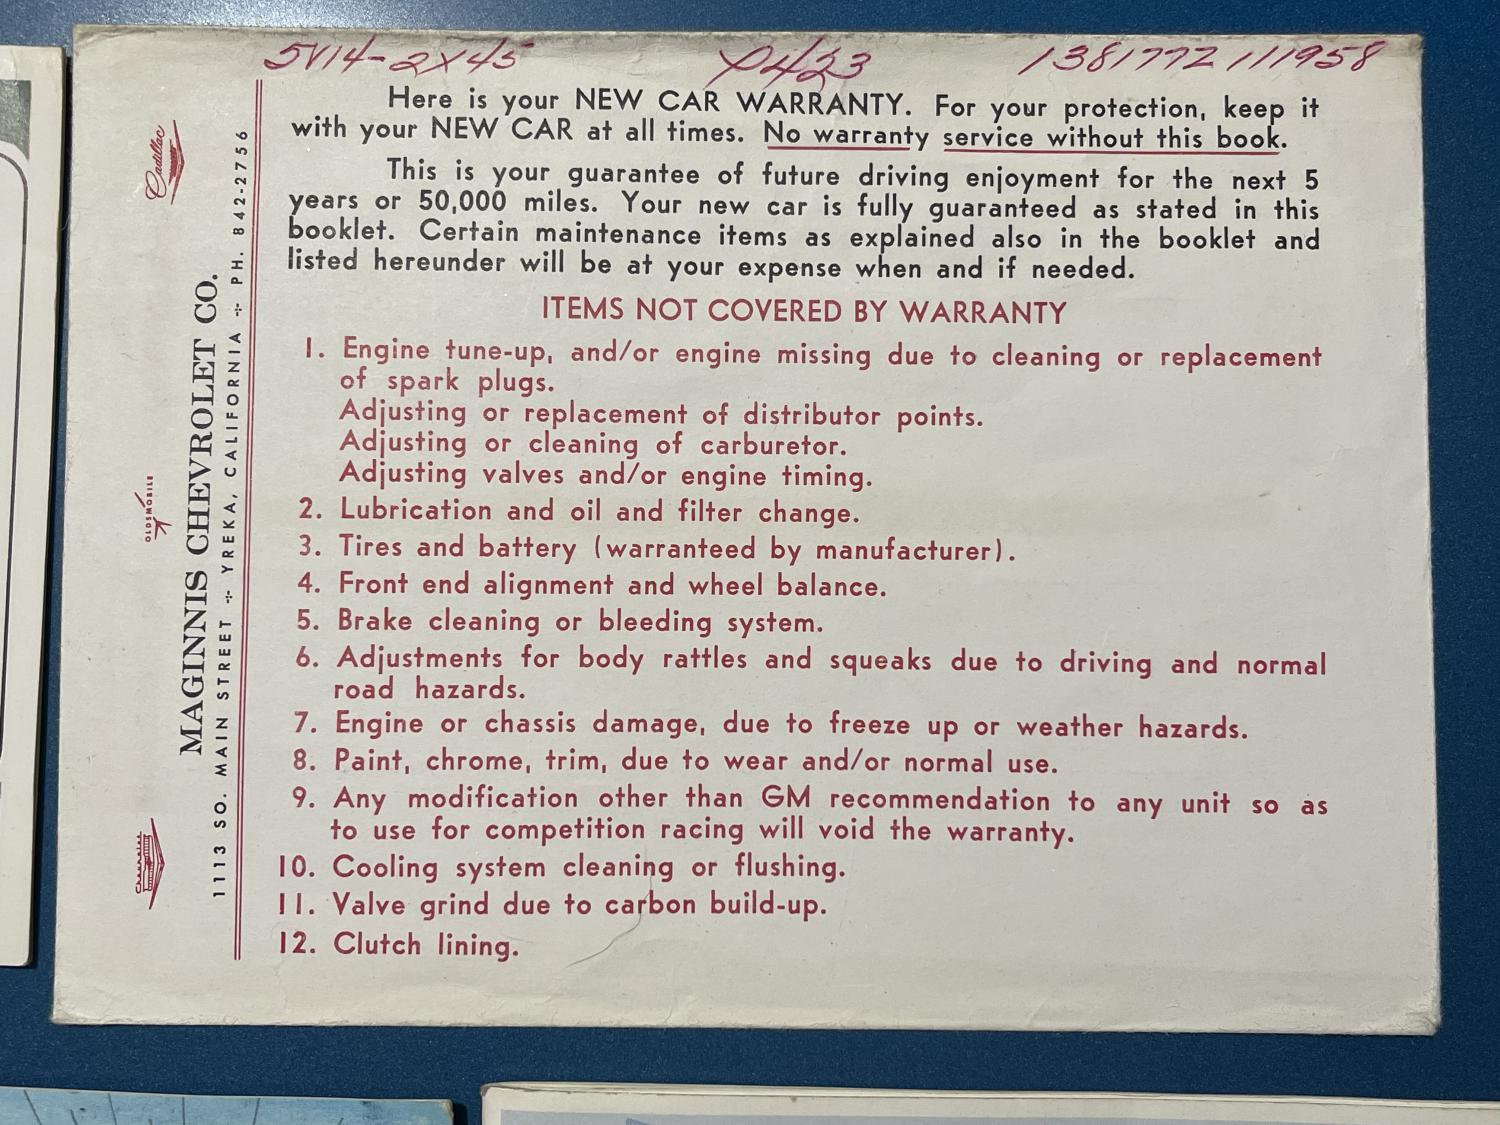 5V14-2X45 P423 138177Z111958
Here is your NEW CAR WARRANTY. For your protection, keep it
with your NEW CAR at all times. No warranty service without this book.
This is your guarantee of future driving enjoyment for the next 5
years or 50,000 miles. Your new car is fully guaranteed as stated in this
booklet. Certain maintenance items as explained also in the booklet and
listed hereunder will be at your expense when and if needed.
ITEMS NOT COVERED BY WARRANTY
1. Engine tune-up, and/or engine missing due to cleaning or replacement
of spark plugs.
Adjusting or replacement of distributor points.
Adjusting or cleaning of carburetor.
Adjusting valves and/or engine timing.
2. Lubrication and oil and filter change.
3. Tires and battery (warranteed by manufacturer).
4. Front end alignment and wheel balance.
5. Brake cleaning or bleeding system.
6. Adjustments for body rattles and squeaks due to driving and normal
road hazards.
7. Engine or chassis damage, due to freeze up or weather hazards.
8. Paint, chrome, trim, due to wear and/or normal use.
9. Any modification other than GM recommendation to any unit so as
to use for competition racing will void the warranty.
10. Cooling system cleaning or flushing.
11. Valve grind due to carbon build-up.
12. Clutch lining.
Chevrolet
OLDSMOBILE
Cadillac
MAGINNIS CHEVROLET CO.
1113 SO. MAIN STREET ÷ YREKA, CALIFORNIA ÷ PH. 842-2756